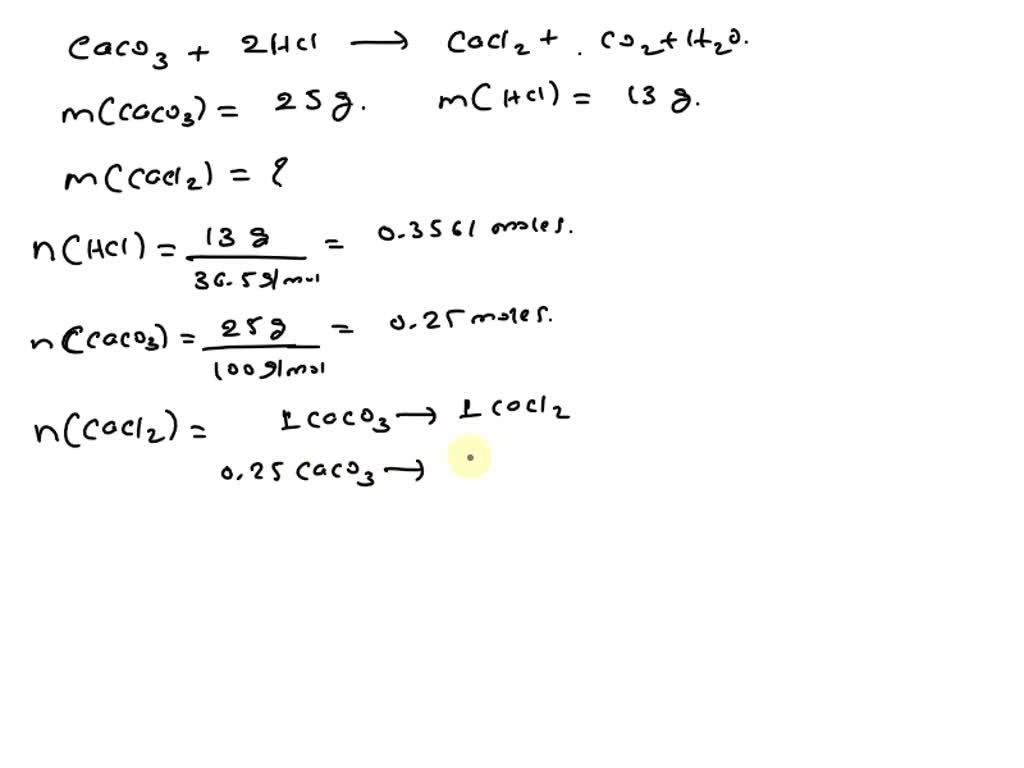 CaCO3 + 2HCl → CaCl2 + . CO2 + H2O.
m(CaCO3) = 25 g. m(HCl) = 13 g.
m(CaCl2) = ?
n(HCl) = 13 g / 36.5 g/mol = 0.3561 moles.
n(CaCO3) = 25 g / 100 g/mol = 0.25 moles.
n(CaCl2) = 1 CaCO3 → 1 CaCl2
0.25 CaCO3 →